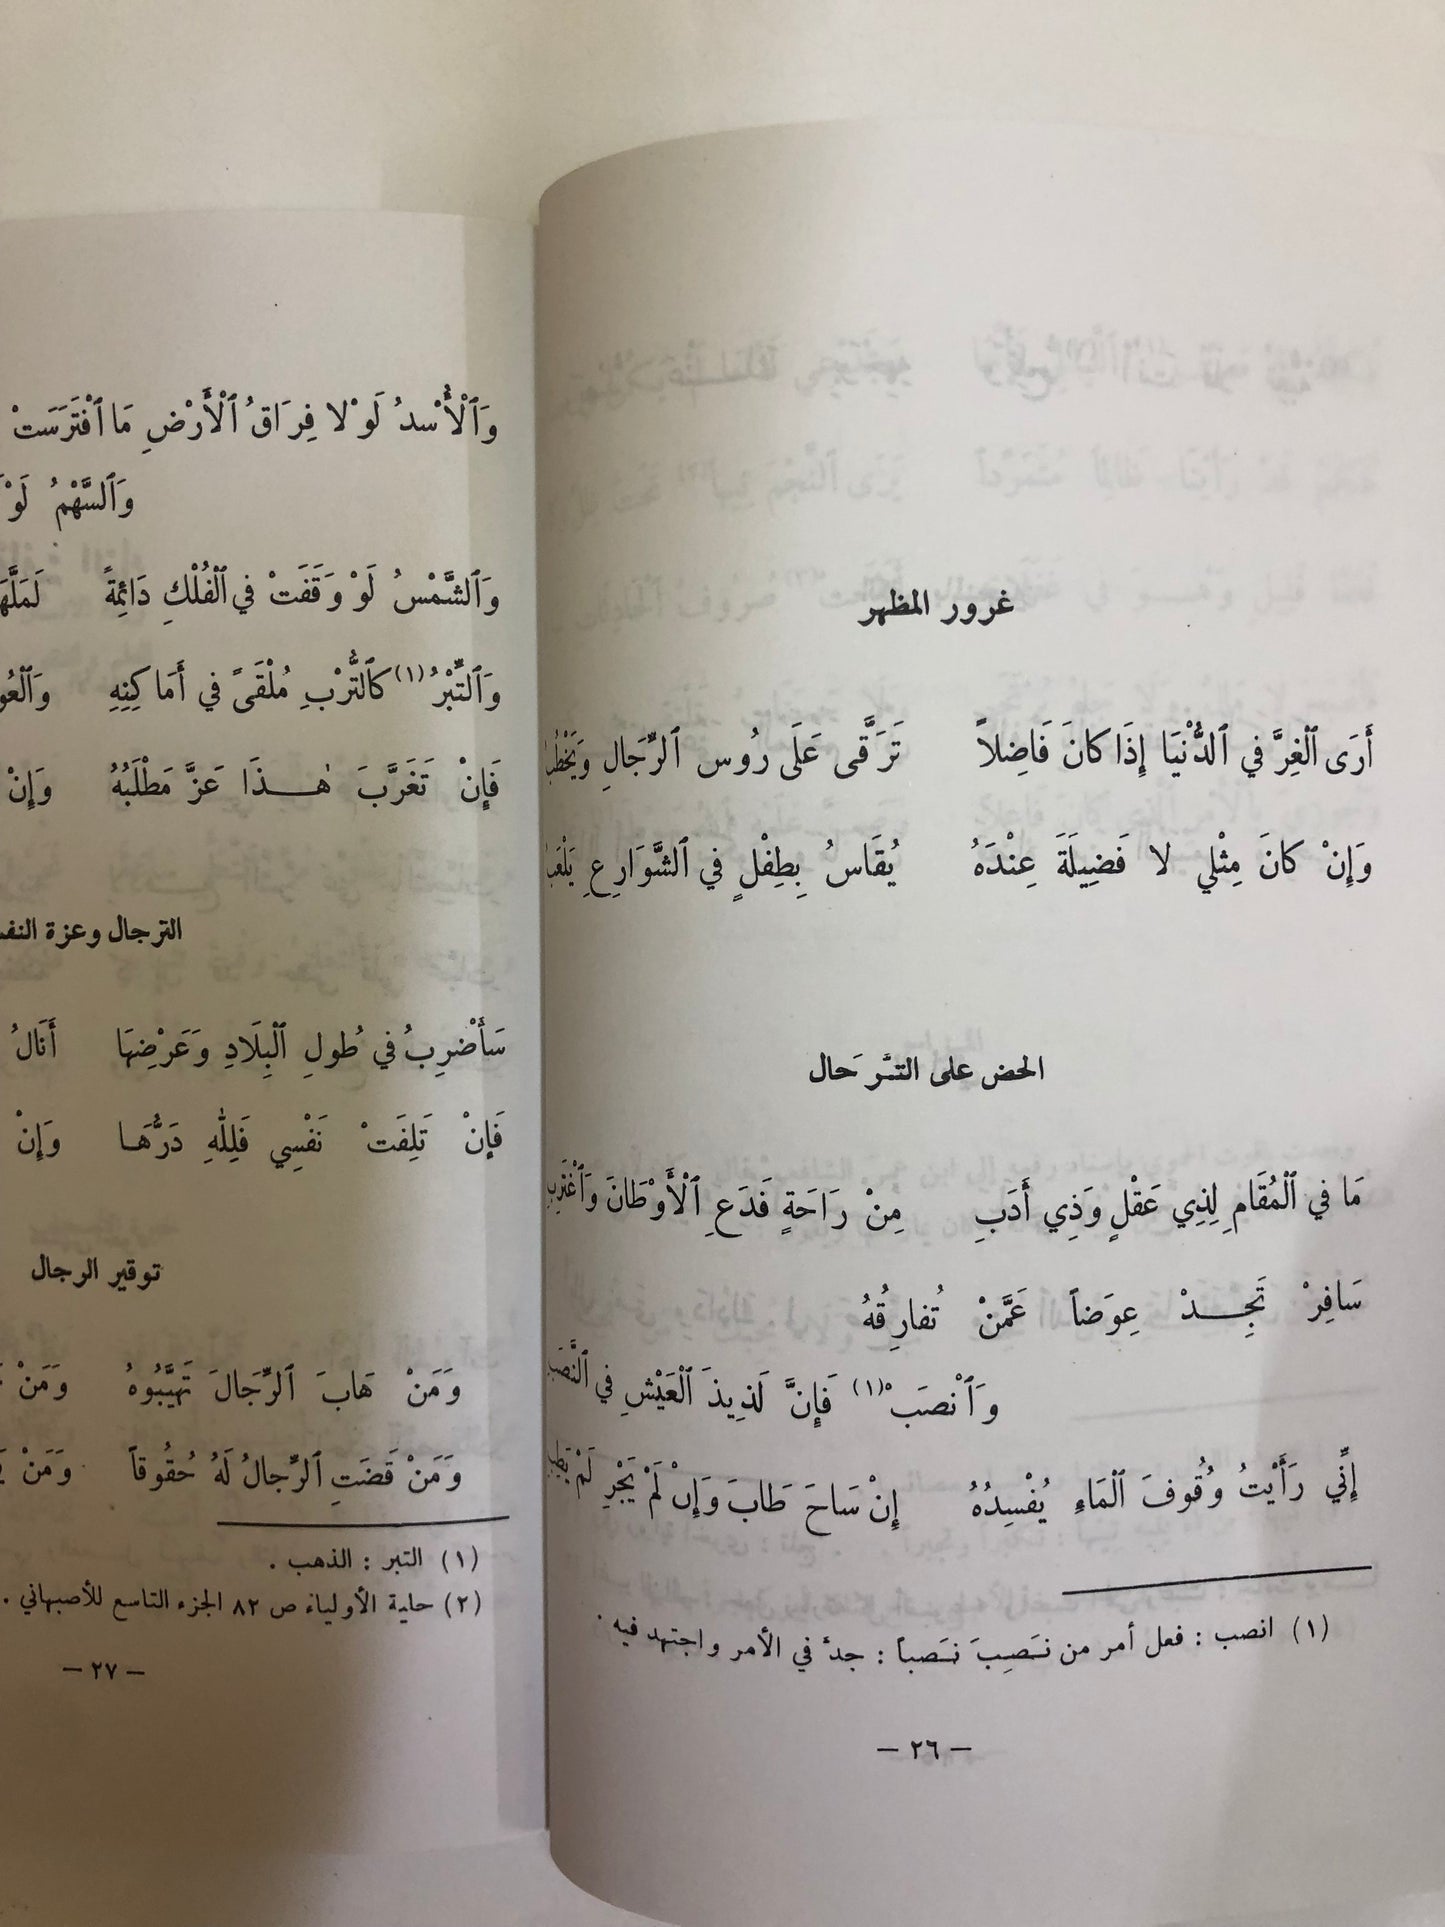 غرور المظهر
أَرَى ٱلْغِرَّ في ٱلدُّنْيَا إِذَا كانَ فَاضِلاً تَرَقَّى عَلَى رُوس ٱلرِّجَالِ وَيَخْطُبُ
وَإِنْ كانَ مِثْلي لا فَضِيلَةَ عِنْدَهُ يُقَاسُ بِطِفْلٍ في ٱلشَّوَارِعِ يَلْعَبُ
الحض على التَّرحَال
مَا في ٱلْمُقَامِ لِذِي عَقْلٍ وَذِي أَدَبِ مِنْ رَاحَةٍ فَدَعِ ٱلْأَوْطَانَ وَٱغْتَرِبِ
سَافِرْ تَجِدْ عِوَضاً عَمَّنْ تُفارِقُهُ
وَٱنْصَبْ(١) فَإِنَّ لَذِيذَ ٱلْعَيْشِ في ٱلنَّصَبِ
إِنِّي رَأَيْتُ وُقُوفَ ٱلْمَاءِ يُفْسِدُهُ إِنْ سَاحَ طَابَ وَإِنْ لَمْ يَجْرِ لَمْ يَطِبِ
(١) انصب : فعل أمر من نَصِبَ نَصباً : جدَّ في الأمر واجتهد فيه .
— ٢٦ —
وَٱلْأُسْدُ لَوْلا فِرَاقُ ٱلْأَرْضِ مَا ٱفْتَرَسَتْ
وَٱلسَّهْمُ لَوْ
وَٱلشَّمْسُ لَوْ وَقَفَتْ في ٱلْفُلْكِ دَائِمَةً
وَٱلتِّبْرُ(١) كَٱلتُّرْبِ مُلْقَىً في أَمَاكِنِهِ
فَإِنْ تَغَرَّبَ هٰذَا عَزَّ مَطْلَبُهُ وَإِنْ
الترحال وعزة
سَأَضْرِبُ في طُولِ ٱلْبِلَادِ وَعَرْضِهَا أَنَالُ
فَإِنْ تَلِفَتْ نَفْسِي فَلِلّٰهِ دَرُّهَا وَإِنْ
توقير الرجال
وَمَنْ هَابَ ٱلرِّجَالَ تَهَيَّبُوهُ وَمَنْ
وَمَنْ قَضَتِ ٱلرِّجالُ لَهُ حُقُوقاً وَمَنْ
(١) التبر : الذهب .
(٢) حلية الأولياء ص ٨٢ الجزء التاسع للأصبهاني .
— ٢٧ —